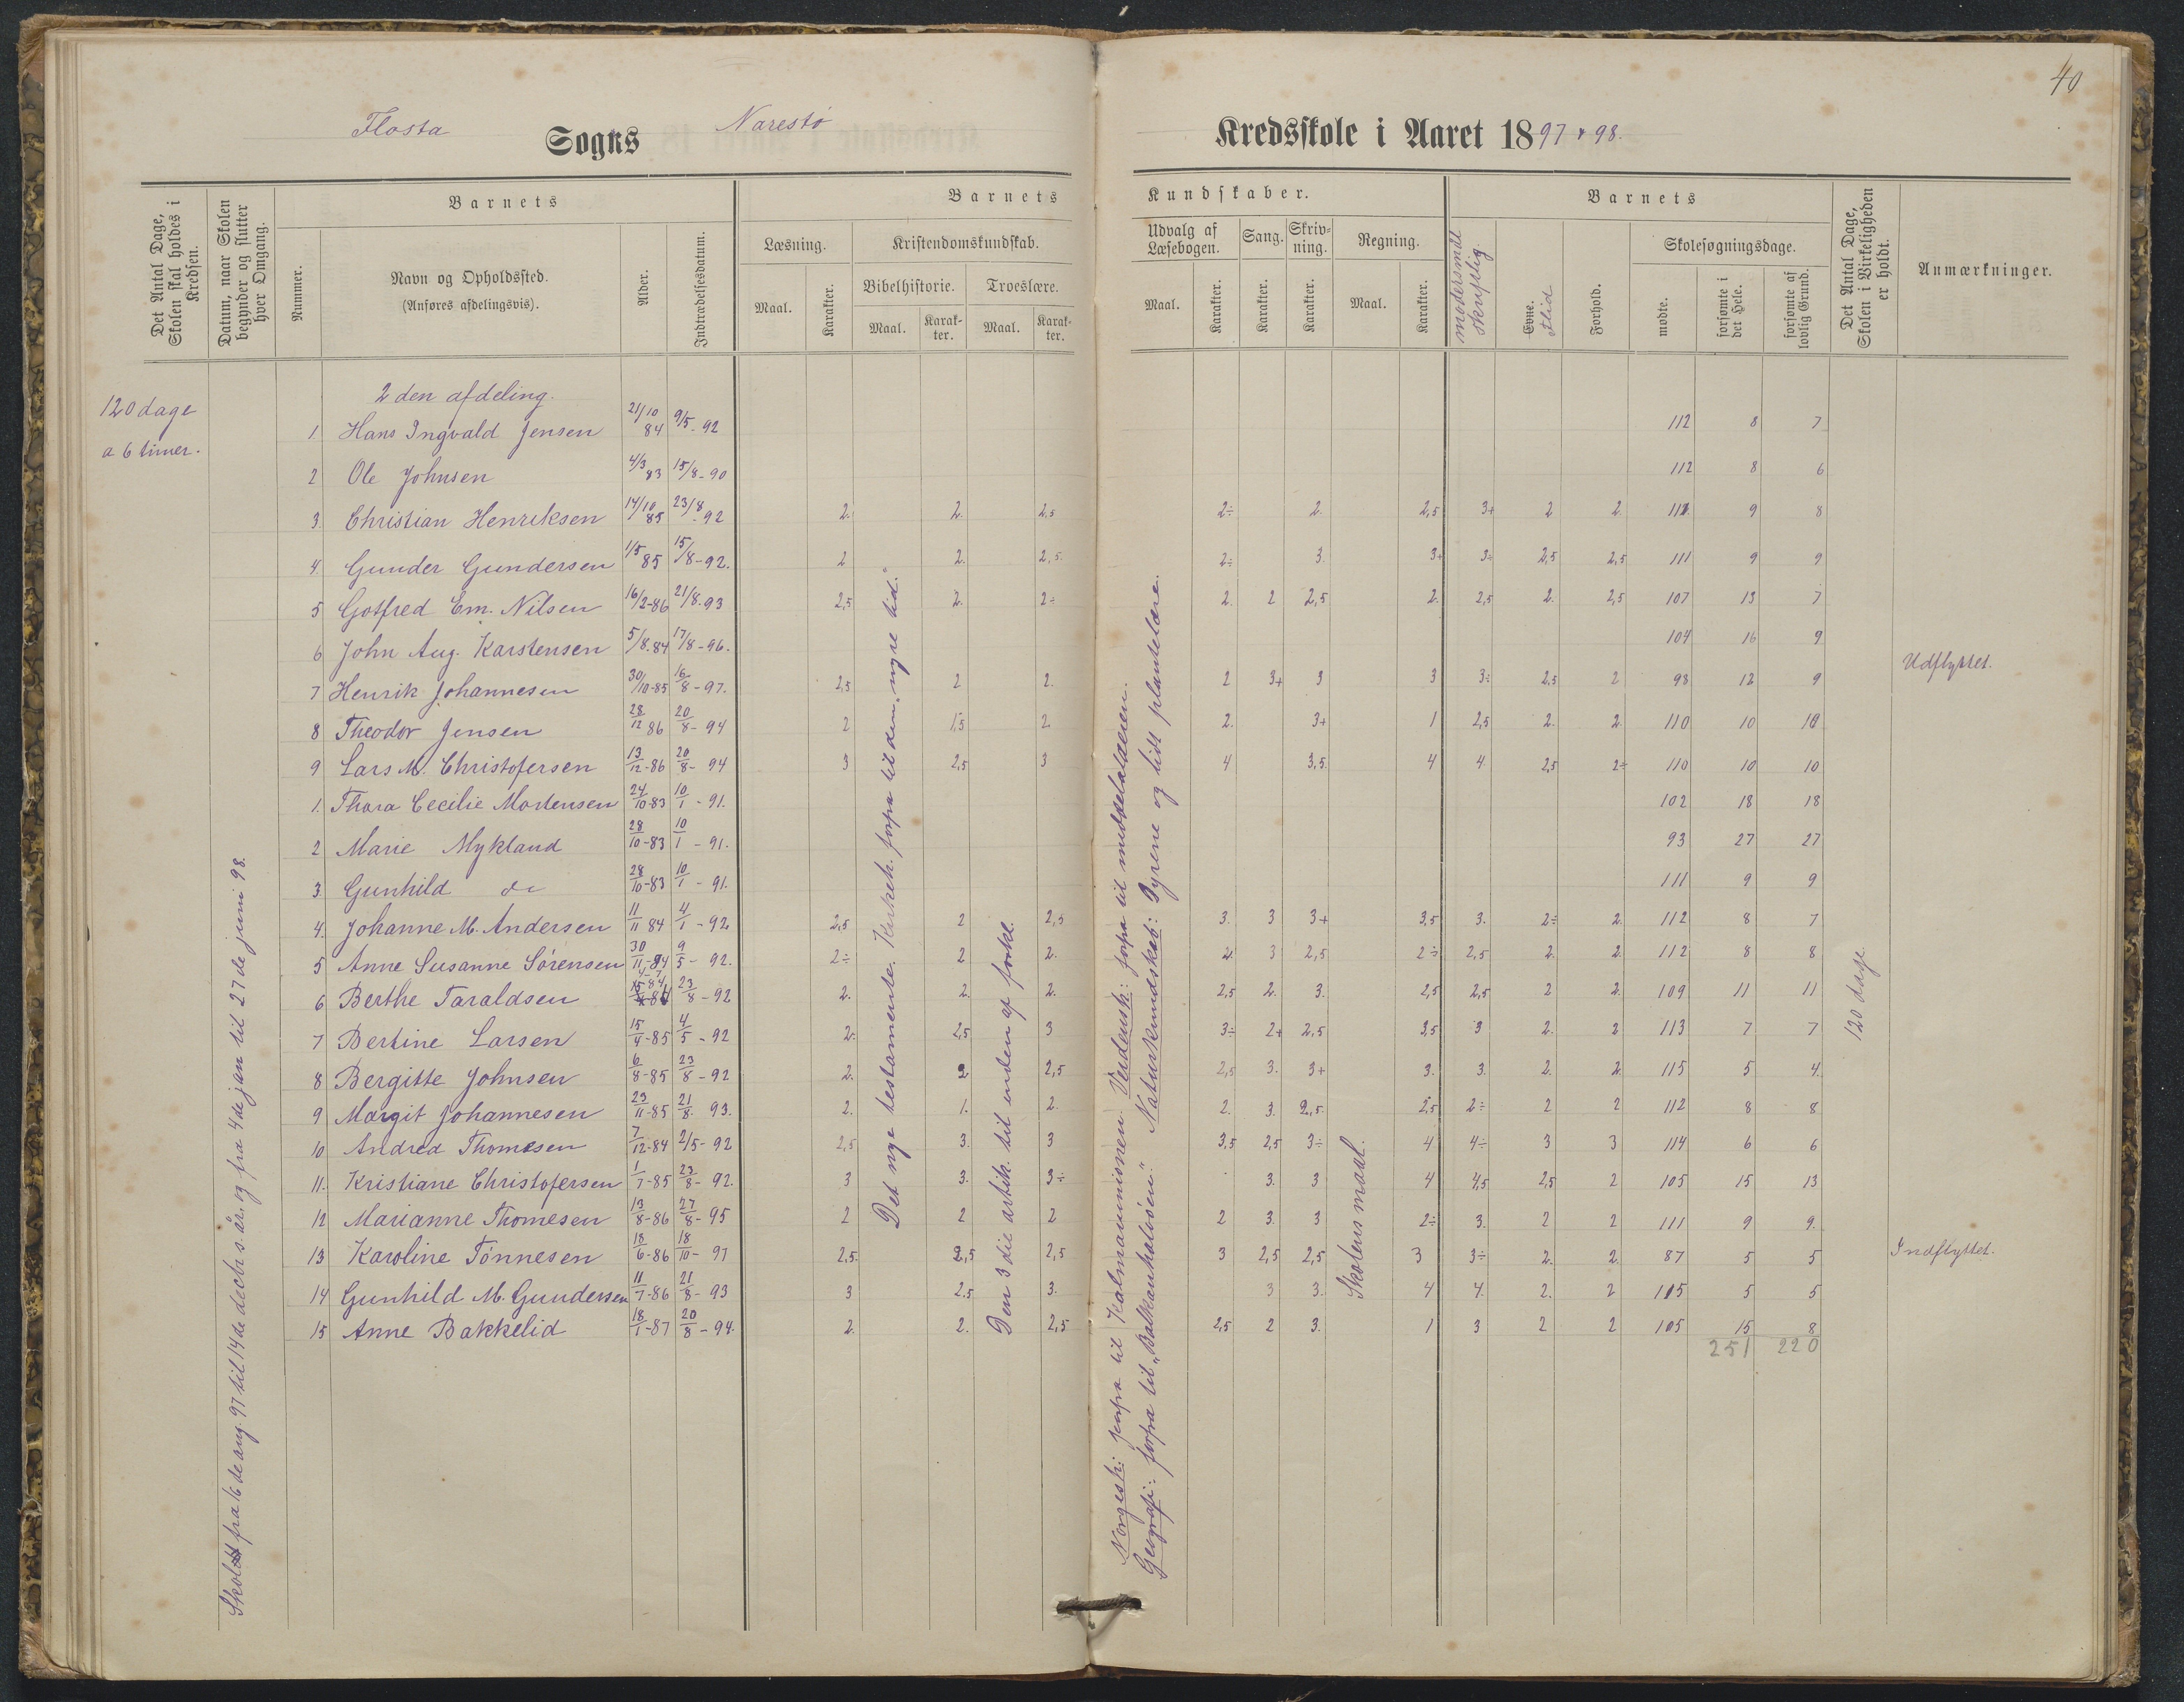 40
Flosta Sogns Narestö Kredsskole i Aaret 1897 & 98.
Det Antal Dage, Skolen skal holdes i Kredsen.
Datum, naar Skolen begynder og slutter hver Omgang.
Barnets
Nummer.
Navn og Opholdssted.
(Anføres afdelingsvis).
Alder.
Indtrædelsesdatum.
Barnets Kundskaber.
Læsning.
Maal. Karakter.
Kristendomskundskab.
Bibelhistorie. Troeslære.
Maal. Karakter. Maal. Karakter.
Udvalg af Læsebogen.
Maal. Karakter.
Sang. Karakter.
Skrivning. Karakter.
Regning.
Maal. Karakter.
modersmål skriftlig
Barnets
Evne. flid
Forhold.
Skolesøgningsdage.
mødte. forsømte i det Hele. forsømte af lovlig Grund.
Det Antal Dage, Skolen i Virkeligheden er holdt.
Anmærkninger.
120 dage
a 6 timer.
2den afdeling.
1. Hans Ingvald Jensen 21/10 84 9/5-92 112 8 7
2 Ole Johnsen 4/3 83 15/8-90 112 8 6
3. Christian Henriksen 14/10 85 23/8-92 2. 2. 2,5 2÷ 2. 2,5 3+ 2 2. 111 9 8
4. Gunder Gundersen 1/5 85 15/8-92. 2 2. 2,5. 2÷ 3. 3+ 3÷ 2,5 2,5 111 9 9
5 Gotfred Em. Nilsen 16/2-86 21/8-93 2,5 2. 2÷ 2. 2 2,5 2. 2,5 2. 2,5 107 13 7
6 John Aug. Karstensen 5/8-84 17/8-96. 104 16 9. Udflyttet.
7 Henrik Johannesen 30/10-85 16/8-97. 2,5 2 2. 2 3+ 3 3 3÷ 2,5 2 98 12 9
8 Theodor Jensen 28/12 86 20/8-94 2 1,5 2 2. 3+ 1 2,5 2. 2. 110 10 10
9 Lars M. Christofersen 13/12-86 20/8-94 3 2,5 3 4 3,5. 4 4 2,5 2÷ 110 10 10
1. Thora Cecilie Mortensen 24/10-83 10/1-91. 102 18 18
2 Marie Mykland 28/10-83 10/1-91. 93 27 27
3. Gunhild do 28/10-83 10/1-91. 111 9 9
4. Johanne M. Andersen 11/11 84 4/1-92 2,5 2 2,5 3. 3 3+ 3,5 3. 2÷ 2. 112 8 7
5 Anne Susanne Sörensen 30/11-84 9/5-92. 2÷ 2 2. 2. 3 2,5 2÷ 2,5 2. 2. 112 8 8
6 Berthe Taraldsen 23/8-92 2. 2. 2. 2,5 2. 3. 2,5 2,5 2 2. 109 11 11
7 Bertine Larsen 15/4-85 4/5-92 2. 2,5 3 3÷ 2+ 2,5 3,5 3 2. 2 113 7 7
8 Bergitte Johnsen 6/8-85 23/8-92 2. 2 2,5 2,5 3. 3+ 3. 3. 2. 2. 115 5 4.
9 Margit Johannesen 23/11-85 21/8-93. 2. 1. 2. 2. 3. 2,5. 2,5 2÷ 2 2 112 8 8
10 Andrea Thomesen 7/12-84 2/5-92 2,5 3. 3 3,5 2,5 3÷ 4 4÷ 3 3 114 6 6
11. Kristiane Christofersen 1/7-85 23/8-92. 3 3. 3÷ 3. 3 4 4,5 2,5 2 105 15 13
12 Marianne Thomesen 13/8-86 27/8-95 2 2 2 2 3. 3 2÷ 3. 2 2 111 9 9.
13 Karoline Tönnesen 18/6-86 18/10-97 2,5. 2,5 2,5 3 2,5 2,5 3 3÷ 2. 2. 87 5 5 Indflyttet.
14 Gunhild M. Gundersen 11/7-86 21/8-93 3 2,5 3. 3 3. 4 4. 2. 2 115 5 5
15 Anne Bakkelid 18/1-87 20/8-94. 2. 2. 2,5 2,5 2 3. 1 3 2 2 105 15 8
251 220
fra 16de aug. 97 til 14de decbr s. år, og fra 4de jan til 27de juni 98.
Det nye testamente. Kirkeh. forfra til den „nyre tid."
Den 3die artik. til enden af forkl.
Norgesh: forfra til Kalmarunionen. Verdensh: forfra til middelalderen.
Geografi: forfra til „Balkanhalvöen". Naturkundskab: Dyrene og lidt plantelære.
Skolens maal.
120 dage